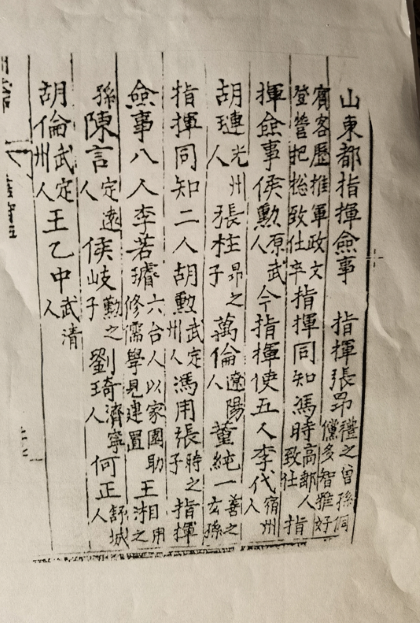 山東都指揮僉事 指揮張昂禮之曾孫倜儻多智雅好
賓客歷推軍政文登營把總致仕卒指揮同知馮時高郵人致仕指
揮僉事侯勲原武人今指揮使五人李代宿州人
胡璉光州人張柱昂之子萬倫遼陽人董純一善之玄孫
指揮同知二人胡勲武定州人馮用時之子張指揮
僉事八人李若璿六合人以家園助修儒學見建置王相用之
孫陳言定遠人侯岐勲之子劉琦濟寧人何正舒城人
胡倫武定州人王乙中武清人